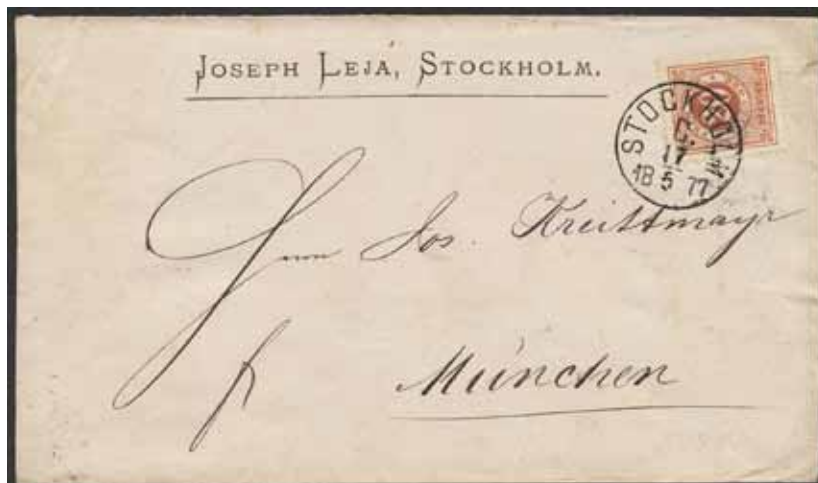 JOSEPH LEJA, STOCKHOLM.
STOCKHOLM
C.
17
18 5 77
Herrn Jos. Kreittmayr
München